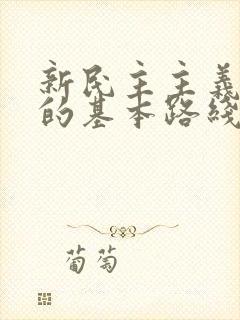 新民主主義
的基本路綫
葡萄